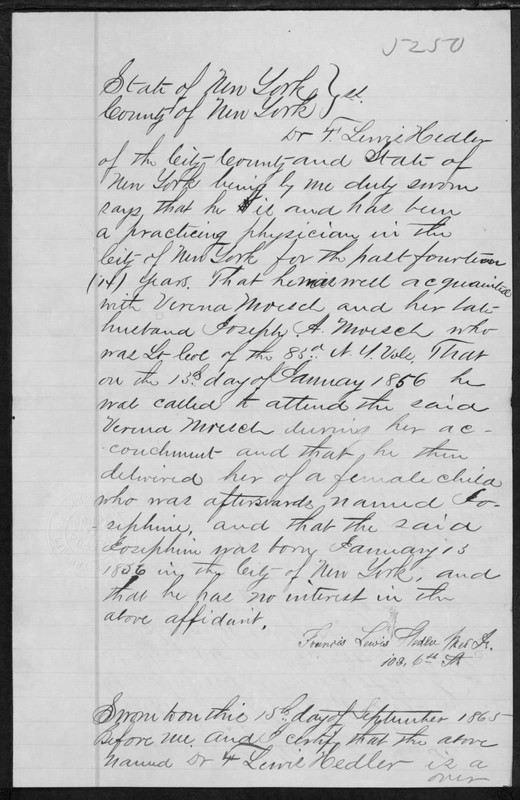 5250
State of New York } ss.
County of New York
Dr F. Lewis Hedler
of the City County and State of
New York being by me duly sworn
says that he is and has been
a practicing physician in the
City of New York for the past fourteen
(14) years. That he was well acquainted
with Verena Moesch and her late
husband Joseph A. Moesch who
was Lt Col of the 83rd N. Y. Vols. That
on the 13th day of January 1856 he
was called to attend the said
Verena Moesch during her ac-
couchment and that he then
delivered her of a female child
who was afterwards named Jo-
sephine, and that the said
Josephine was born January 13
1856 in the City of New York, and
that he has no interest in the
above affidavit.
Francis Lewis Hedler
103, 6th St
Sworn to on this 15th day of September 1865
Before me. and I certify that the above
named Dr F Lewis Hedler is a
over